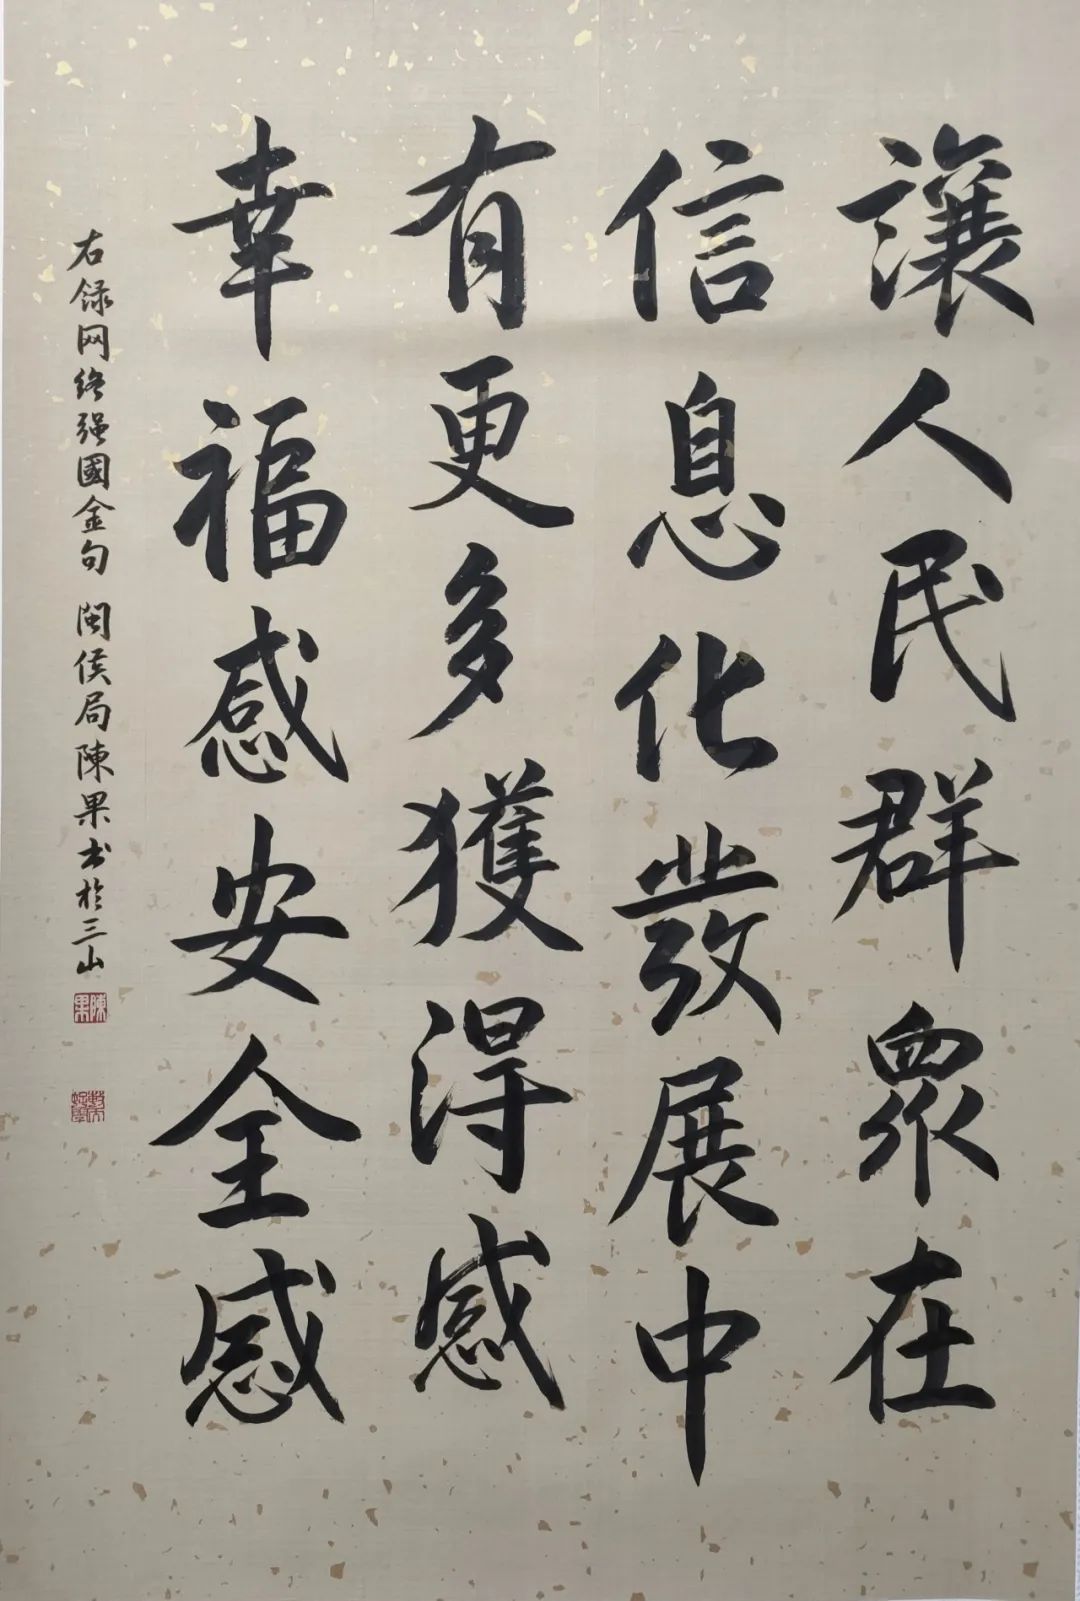 讓人民群眾在
信息化發展中
有更多獲得感
幸福感安全感
右録网络强國金句 閩侯局陳果书於三山
陳果